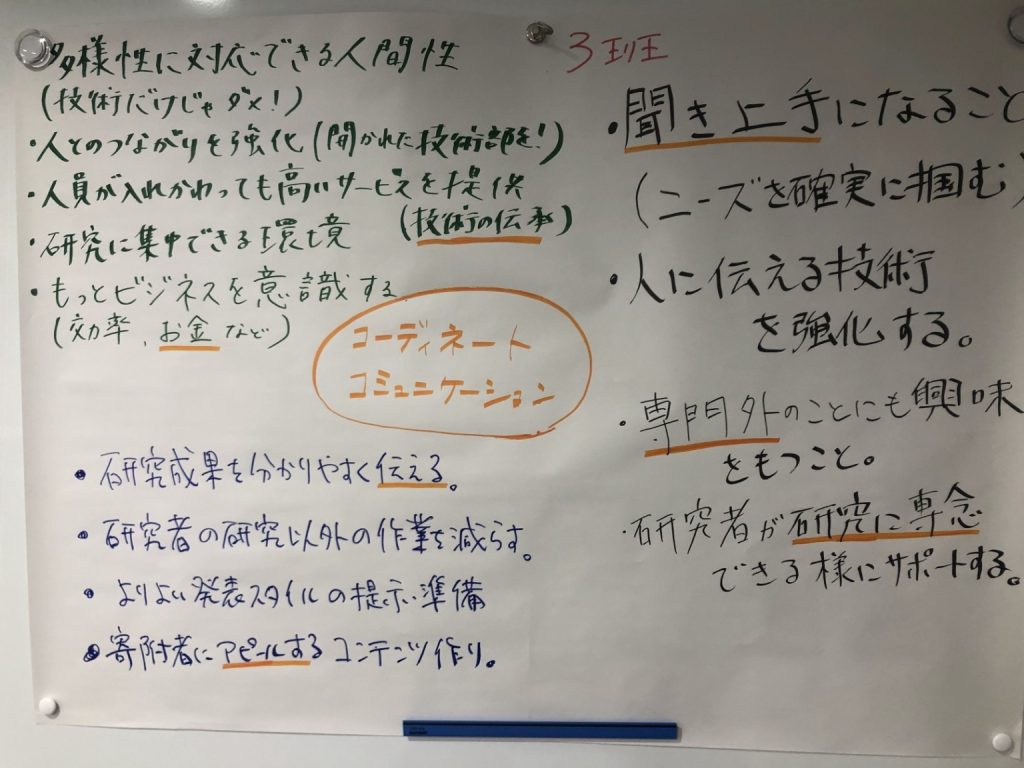 3班
・多様性に対応できる人間性
(技術だけじゃダメ!)
・人とのつながりを強化(開かれた技術部を!)
・人員が入れかわっても高いサービスを提供
(技術の伝承)
・研究に集中できる環境
・もっとビジネスを意識する
(効率、お金など)
コーディネート
コミュニケーション
・研究成果を分かりやすく伝える。
・研究者の研究以外の作業を減らす。
・よりよい発表スタイルの提示・準備
・寄附者にアピールするコンテンツ作り。
・聞き上手になること
(ニーズを確実に掴む)
・人に伝える技術
を強化する。
・専門外のことにも興味
をもつこと。
・研究者が研究に専念
できる様にサポートする。